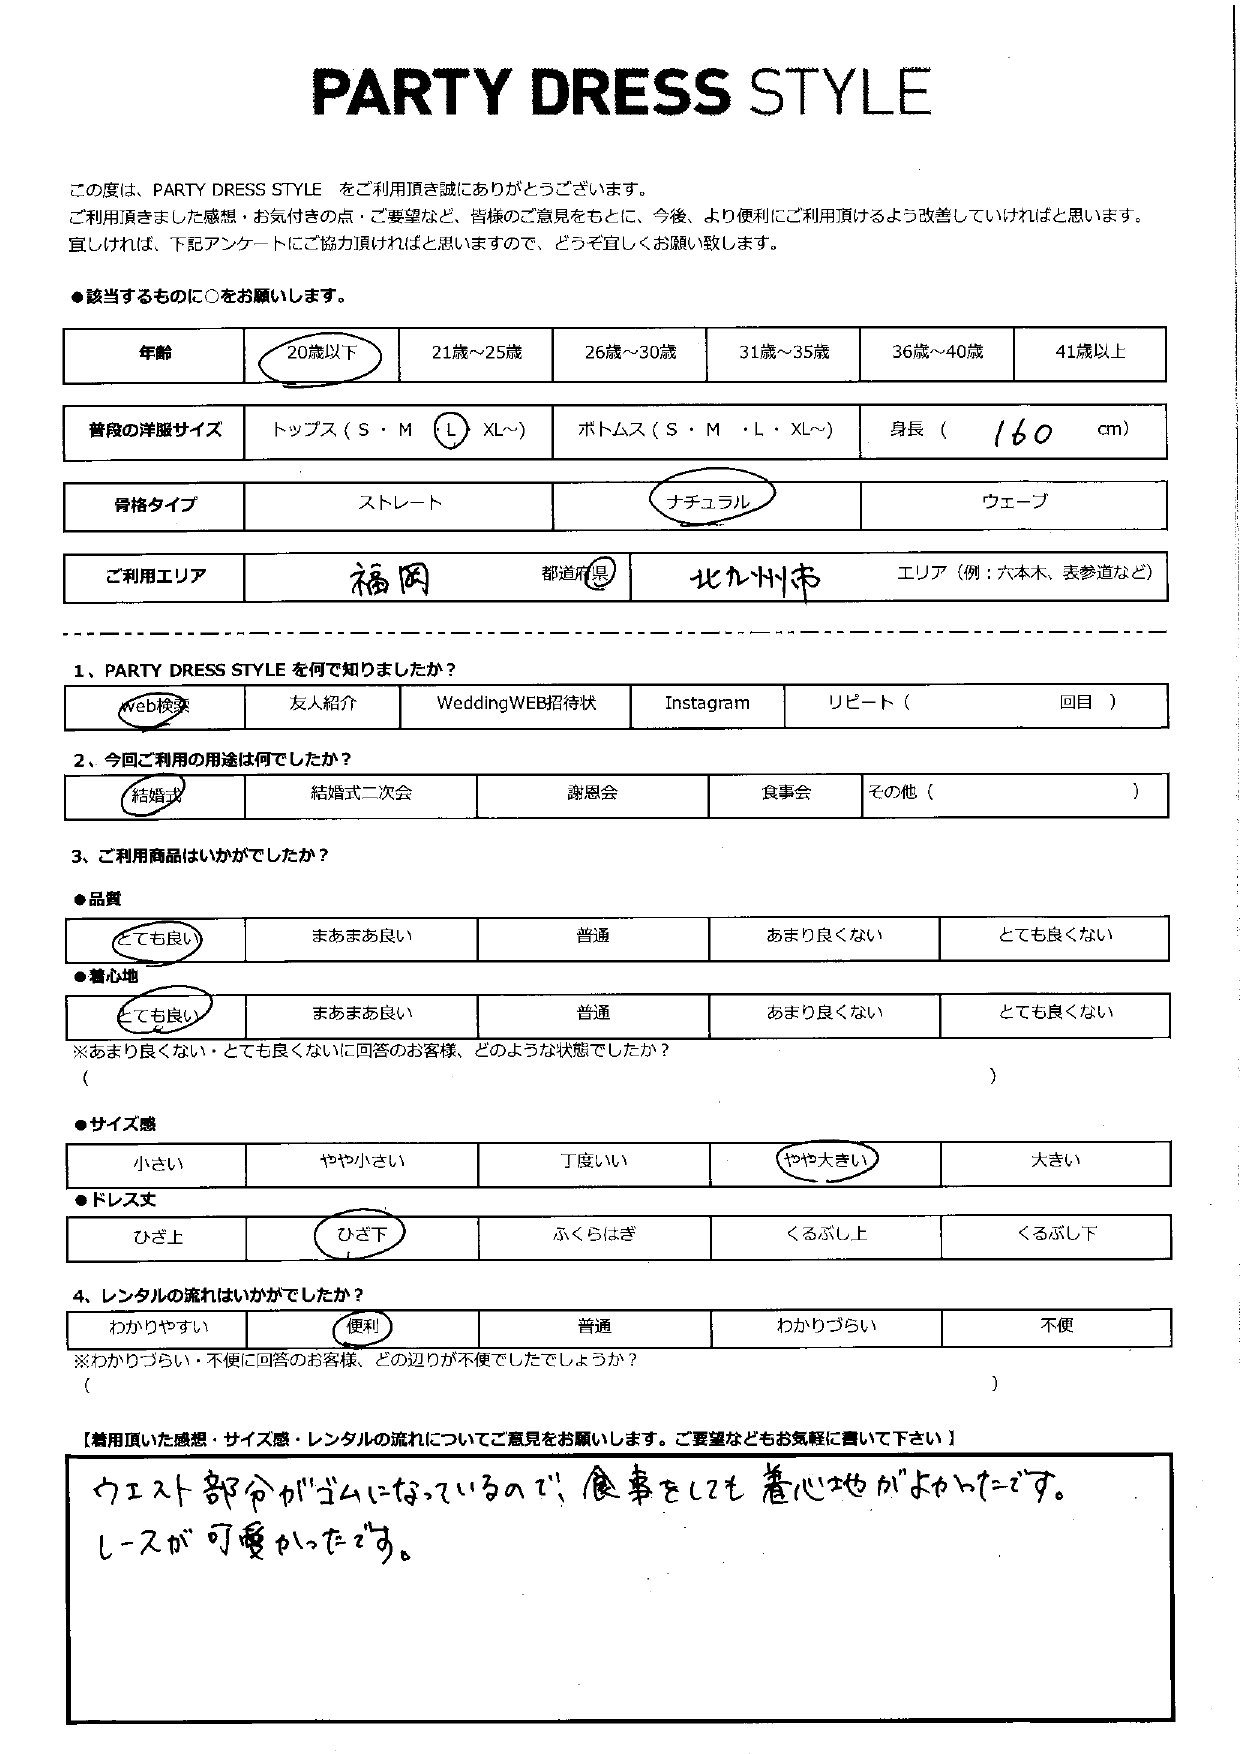 PARTY DRESS STYLE
この度は、PARTY DRESS STYLE　をご利用頂き誠にありがとうございます。
ご利用頂きました感想・お気付きの点・ご要望など、皆様のご意見をもとに、今後、より便利にご利用頂けるよう改善していければと思います。
宜しければ、下記アンケートにご協力頂ければと思いますので、どうぞ宜しくお願い致します。
●該当するものに○をお願いします。
年齢 20歳以下 21歳～25歳 26歳～30歳 31歳～35歳 36歳～40歳 41歳以上
普段の洋服サイズ トップス ( S ・ M ・L・ XL～) ボトムス ( S ・ M ・L ・ XL～) 身長 ( 160 cm)
骨格タイプ ストレート ナチュラル ウェーブ
ご利用エリア 福岡 都道府県 北九州市 エリア（例：六本木、表参道など）
1、PARTY DRESS STYLE を何で知りましたか？
web検索 友人紹介 WeddingWEB招待状 Instagram リピート（ 回目 ）
2、今回ご利用の用途は何でしたか？
結婚式 結婚式二次会 謝恩会 食事会 その他（ ）
3、ご利用商品はいかがでしたか？
●品質
とても良い まあまあ良い 普通 あまり良くない とても良くない
●着心地
とても良い まあまあ良い 普通 あまり良くない とても良くない
※あまり良くない・とても良くないに回答のお客様、どのような状態でしたか？
( )
●サイズ感
小さい やや小さい 丁度いい やや大きい 大きい
●ドレス丈
ひざ上 ひざ下 ふくらはぎ くるぶし上 くるぶし下
4、レンタルの流れはいかがでしたか？
わかりやすい 便利 普通 わかりづらい 不便
※わかりづらい・不便に回答のお客様、どの辺りが不便でしたでしょうか？
( )
【着用頂いた感想・サイズ感・レンタルの流れについてご意見をお願いします。ご要望などもお気軽に書いて下さい】
ウエスト部分がゴムになっているので、食事をしても着心地がよかったです。
レースが可愛かったです。